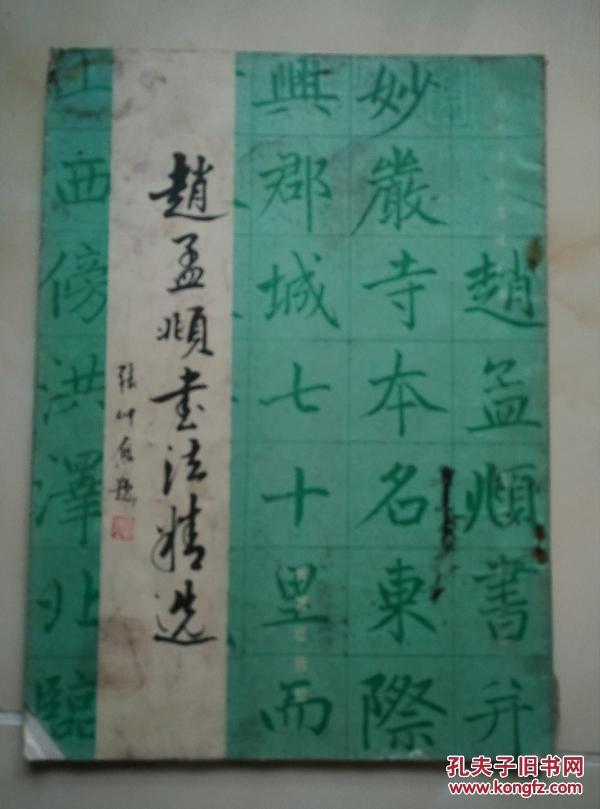 趙孟頫書并
妙嚴寺本名東際
興郡城七十里而
趙孟頫书法精选
西傍洪澤北臨
孔夫子旧书网
www.kongfz.com